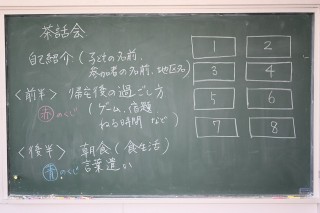 茶話会
自己紹介(子どもの名前、
参加者の名前、地区名)
<前半> 帰宅後の過ごし方
赤のくじ
(ゲーム、宿題
ねる時間 など)
<後半> 朝食(食生活)
青のくじ 言葉遣い
1 2
3 4
5 6
7 8